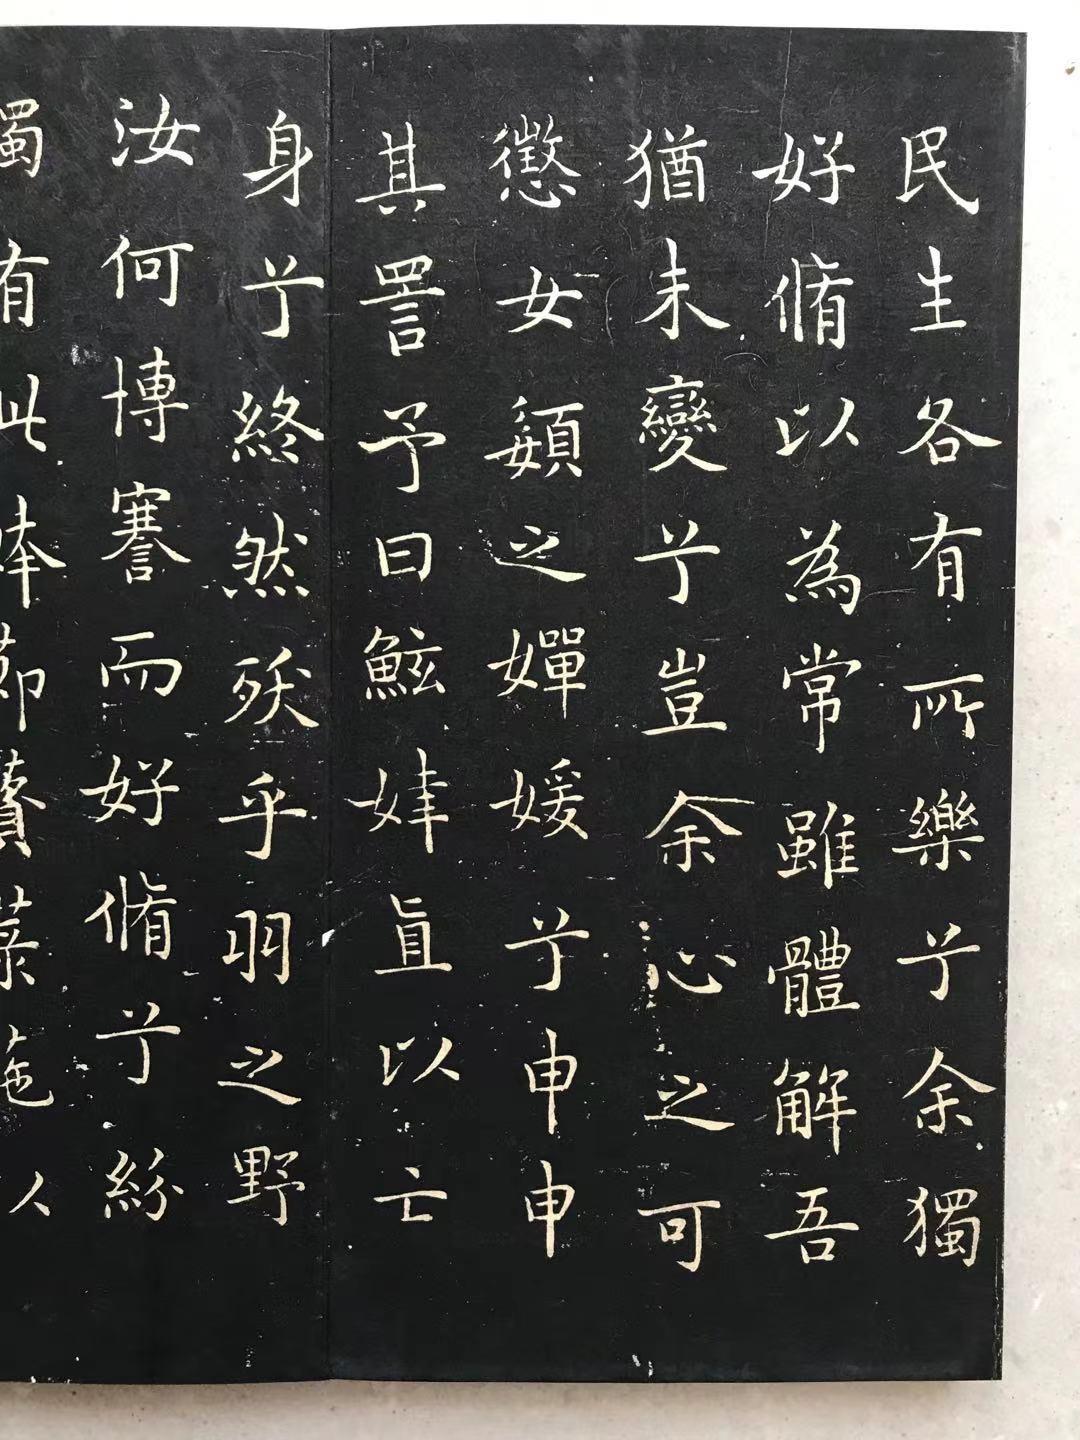 民生各有所樂兮余獨
好脩以為常雖體解吾
猶未變兮豈余心之可
懲女顉之嬋媛兮申申
其詈予曰鮌婞直以亡
身兮終然殀乎羽之野
汝何博謇而好脩兮紛
獨有此姱節薋菉葹以